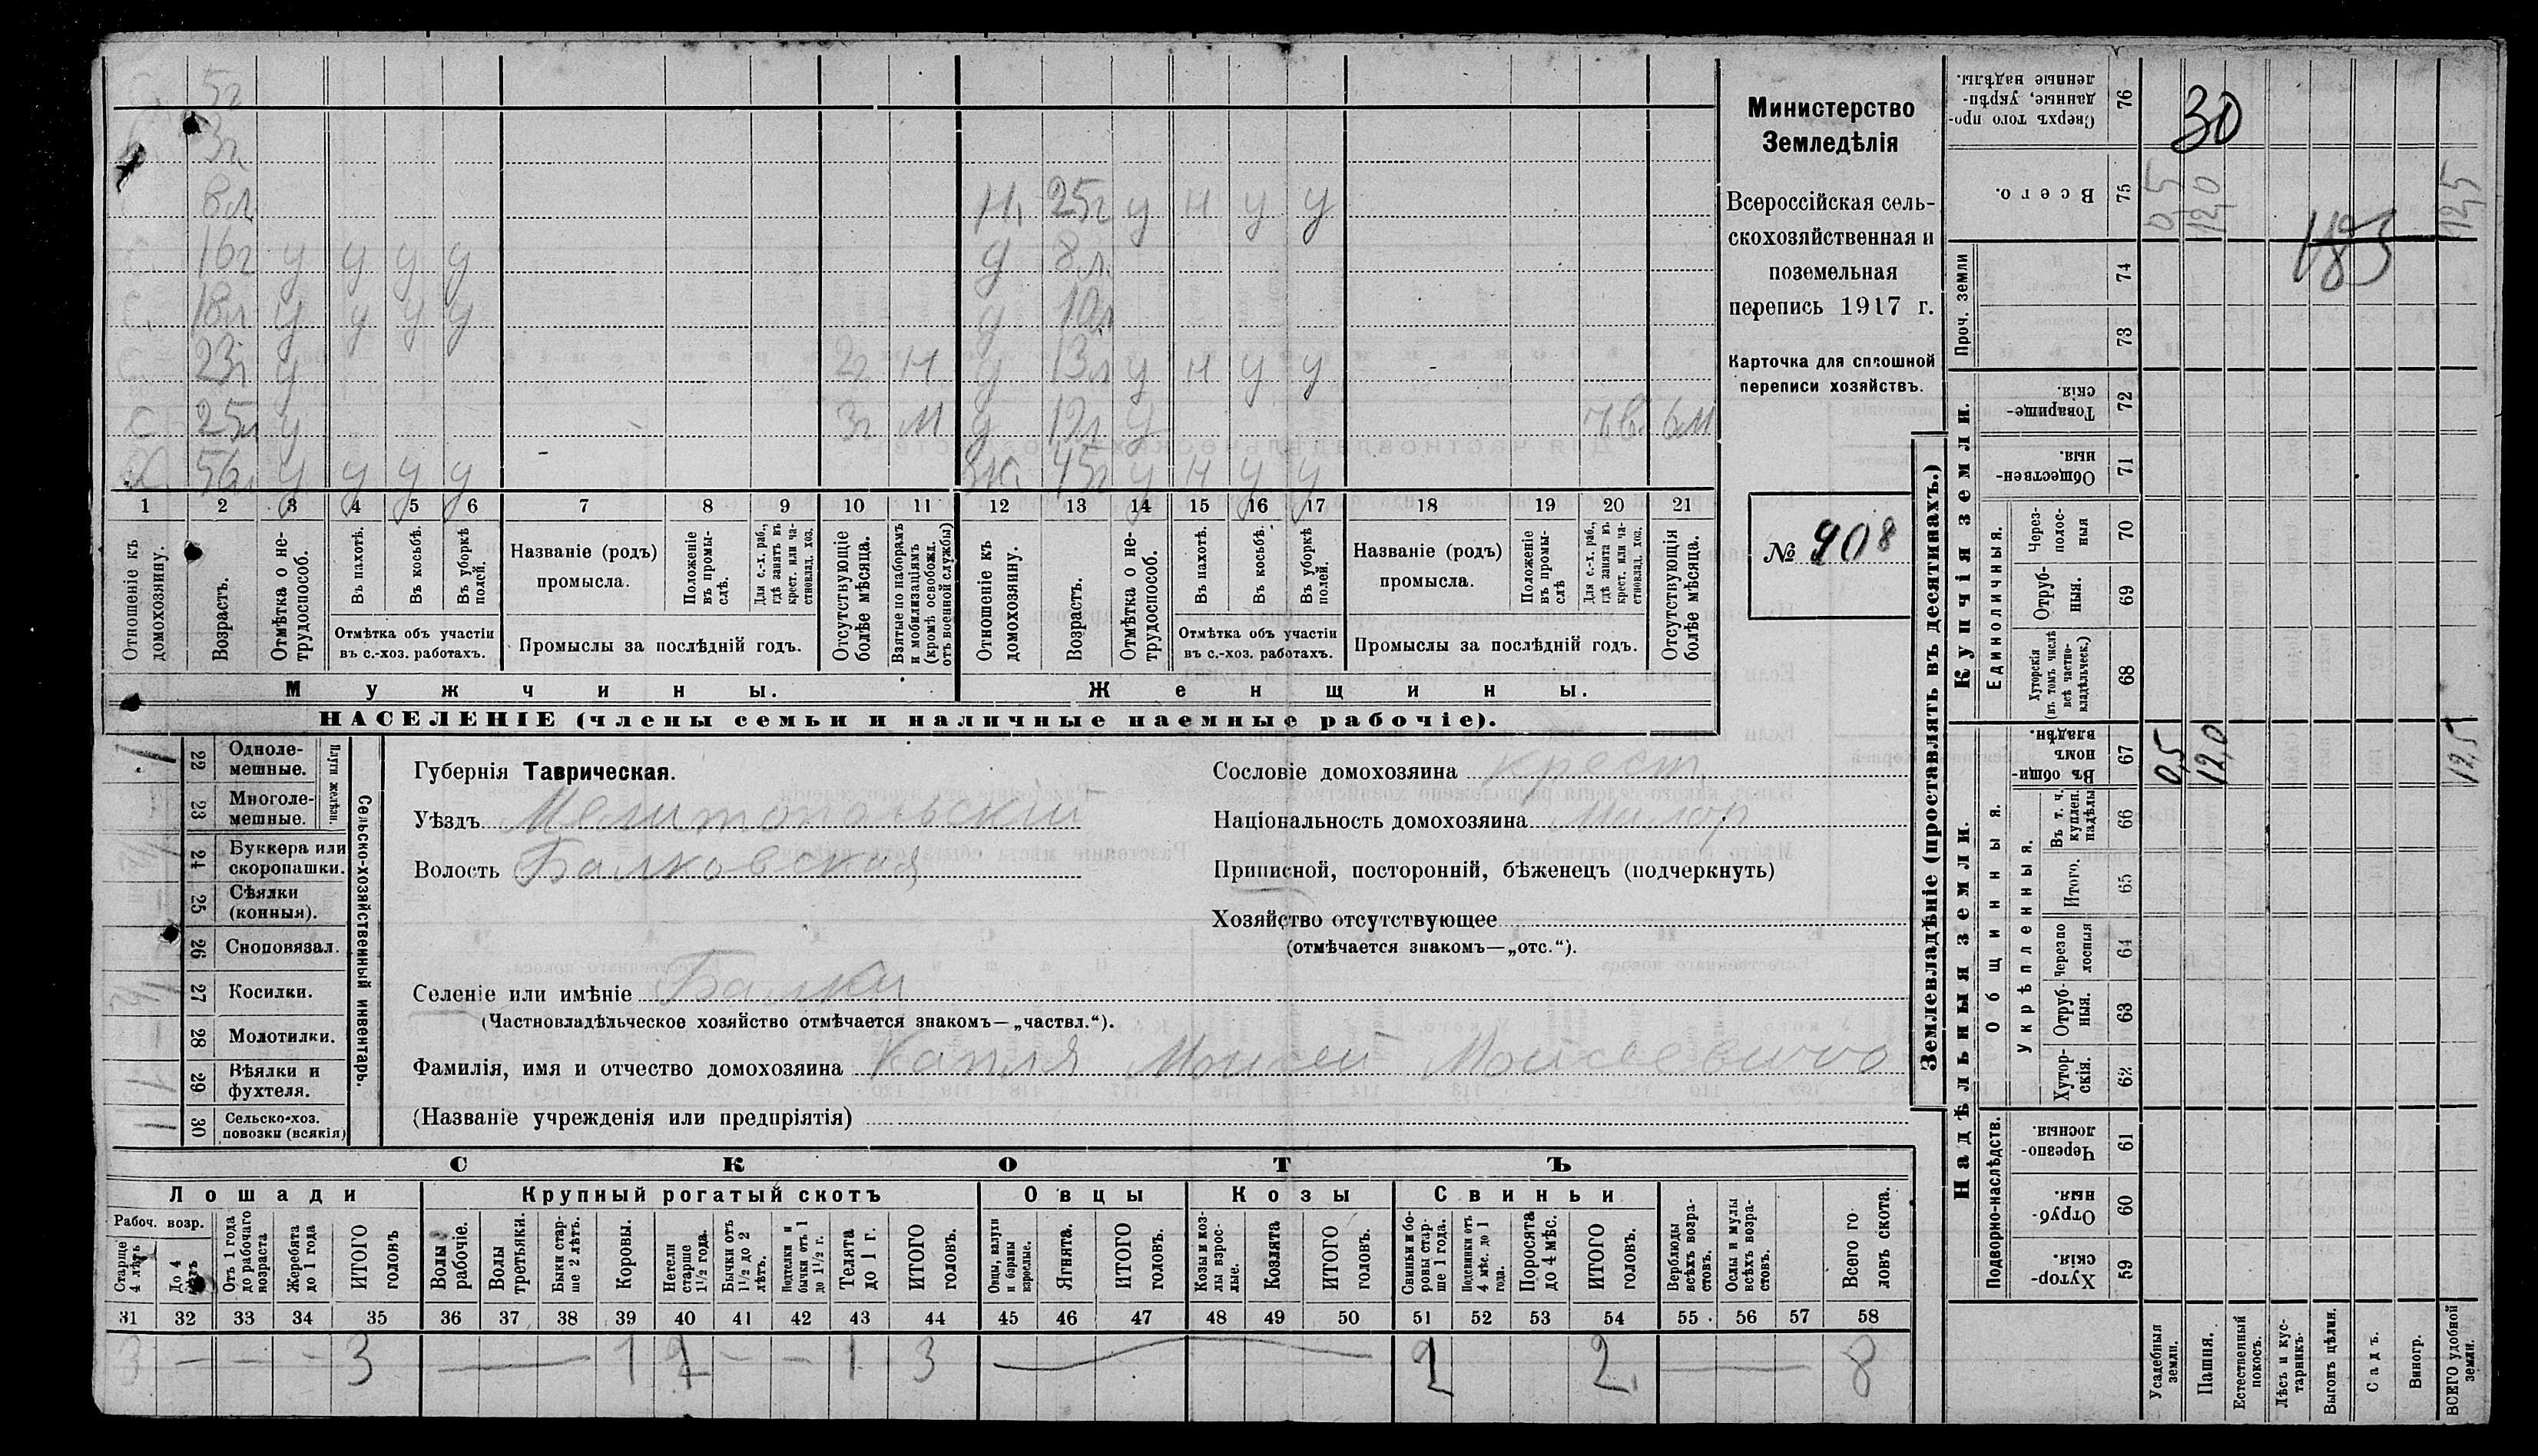 С. 5г
3г.
8л. Н. 25г у н у у
16г у у у у д 8л.
С. 18л у у у у д 10л
С. 23г у 2г Н д 13л у н у у
С 25л у 3г М д 19л у 6м
Х. 56л у у у у Ж. 45г у н у у
1 2 3 4 5 6 7 8 9 10 11 12 13 14 15 16 17 18 19 20 21
Отношеніе къ домохозяину.
Возрастъ.
Отмѣтка о не-трудоспособ.
Въ пахотѣ.
Въ косьбѣ.
Въ уборкѣ полей.
Отмѣтка объ участіи въ с.-хоз. работахъ.
Названіе (родъ) промысла.
Положеніе въ промы-слѣ.
Для с.-х. раб., гдѣ занятъ въ крест. или ча-стновлад. хоз.
Промыслы за послѣдній годъ.
Отсутствующіе болѣе мѣсяца.
Взятые по наборамъ и мобилизаціямъ (кромѣ освобожд. отъ военной службы)
Отношеніе къ домохозяину.
Возрастъ.
Отмѣтка о не-трудоспособ.
Въ пахотѣ.
Въ косьбѣ.
Въ уборкѣ полей.
Отмѣтка объ участіи въ с.-хоз. работахъ.
Названіе (родъ) промысла.
Положеніе въ промы-слѣ
Для с.-х. раб., гдѣ занята въ крест. или ча-стновлад. хоз.
Промыслы за послѣдній годъ.
Отсутствующія болѣе мѣсяца.
Мужчины. Женщины.
НАСЕЛЕНІЕ (члены семьи и наличные наемные рабочіе).
Министерство
Земледѣлія
Всероссійская сель-
скохозяйственная и
поземельная
перепись 1917 г.
Карточка для сплошной
переписи хозяйствъ.
№ 908
22 Одноле-мешные.
23 Многоле-мешные.
Плуги желѣзн.
24 Буккера или скоропашки.
25 Сѣялки (конныя).
26 Сноповязал.
27 Косилки.
28 Молотилки.
29 Вѣялки и фухтеля.
30 Сельско-хоз. повозки (всякія)
Сельско-хозяйственный инвентарь.
Губернія Таврическая.
Уѣздъ Мелитопольскій
Волость Балковская
Селеніе или имѣніе Балки
(Частновладѣльческое хозяйство отмѣчается знакомъ—„частвл.“).
Фамилія, имя и отчество домохозяина Капля Моисей Моисеевичъ
(Названіе учрежденія или предпріятія)
Сословіе домохозяина крест.
Національность домохозяина Малор
Приписной, посторонній, бѣженецъ (подчеркнуть)
Хозяйство отсутствующее
(отмѣчается знакомъ—„отс.“).
СКОТЪ
Лошади Крупный рогатый скотъ Овцы Козы Свиньи
Рабоч. возр.
Старше 4 лѣтъ
До 4 лѣтъ
Отъ 1 года до рабочаго возраста
Жеребята до 1 года
ИТОГО головъ
Волы рабочіе.
Волы третьяки.
Быки стар-ше 2 лѣтъ.
Коровы.
Нетели старше 1½ года.
Бычки отъ 1½ до 2 лѣтъ.
Подтелки и бычки отъ 1 до 1½ г.
Телята до 1 г.
ИТОГО головъ.
Овцы, валухи и бараны взрослые.
Ягнята.
ИТОГО головъ.
Козы и коз-лы взрос-лые.
Козлята
ИТОГО головъ.
Свиньи и бо-ровы стар-ше 1 года.
Подсвинки отъ 4 мѣс. до 1 года.
Поросята до 4 мѣс.
ИТОГО головъ.
Верблюды всѣхъ возра-стовъ.
Ослы и мулы всѣхъ возра-стовъ.
Всего го-ловъ скота.
31 32 33 34 35 36 37 38 39 40 41 42 43 44 45 46 47 48 49 50 51 52 53 54 55 56 57 58
3 — — — 3 — 1 1 — — 1 3 — 2 2 — 8
Землевладѣніе (проставлять въ десятинахъ.)
Надѣльныя земли. Купчія земли.
Проч. земли
Сверхъ того про-данные, укрѣп-ленные надѣлы. 76 30
Всего. 75 0,5 12,0 12,5
74
73
Товарище-скія. 72
Обществен-ныя. 71
Единоличныя.
Через-полос-ныя 70
Отруб-ныя. 69
Хуторскія (въ томъ числѣ всѣ частно-владѣльческ.) 68
Общинныя.
Въ общин-номъ владѣн. 67 0,5 12,0 12,5
Укрѣпленныя.
Въ т. ч. куплен. надѣлы 66
Итого. 65
Черезпо лосныя 64
Отруб-ныя. 63
Хутор-скія. 62
Подворно-наслѣдств.
Черезпо-лосныя. 61
Отруб-ныя. 60
Хутор-скія. 59
Усадебныя земли.
Пашня.
Естественный покосъ.
Лѣсъ и кус-тарникъ.
Выгонъ цѣлин.
Садъ.
Виногр.
ВСЕГО удобной земли.